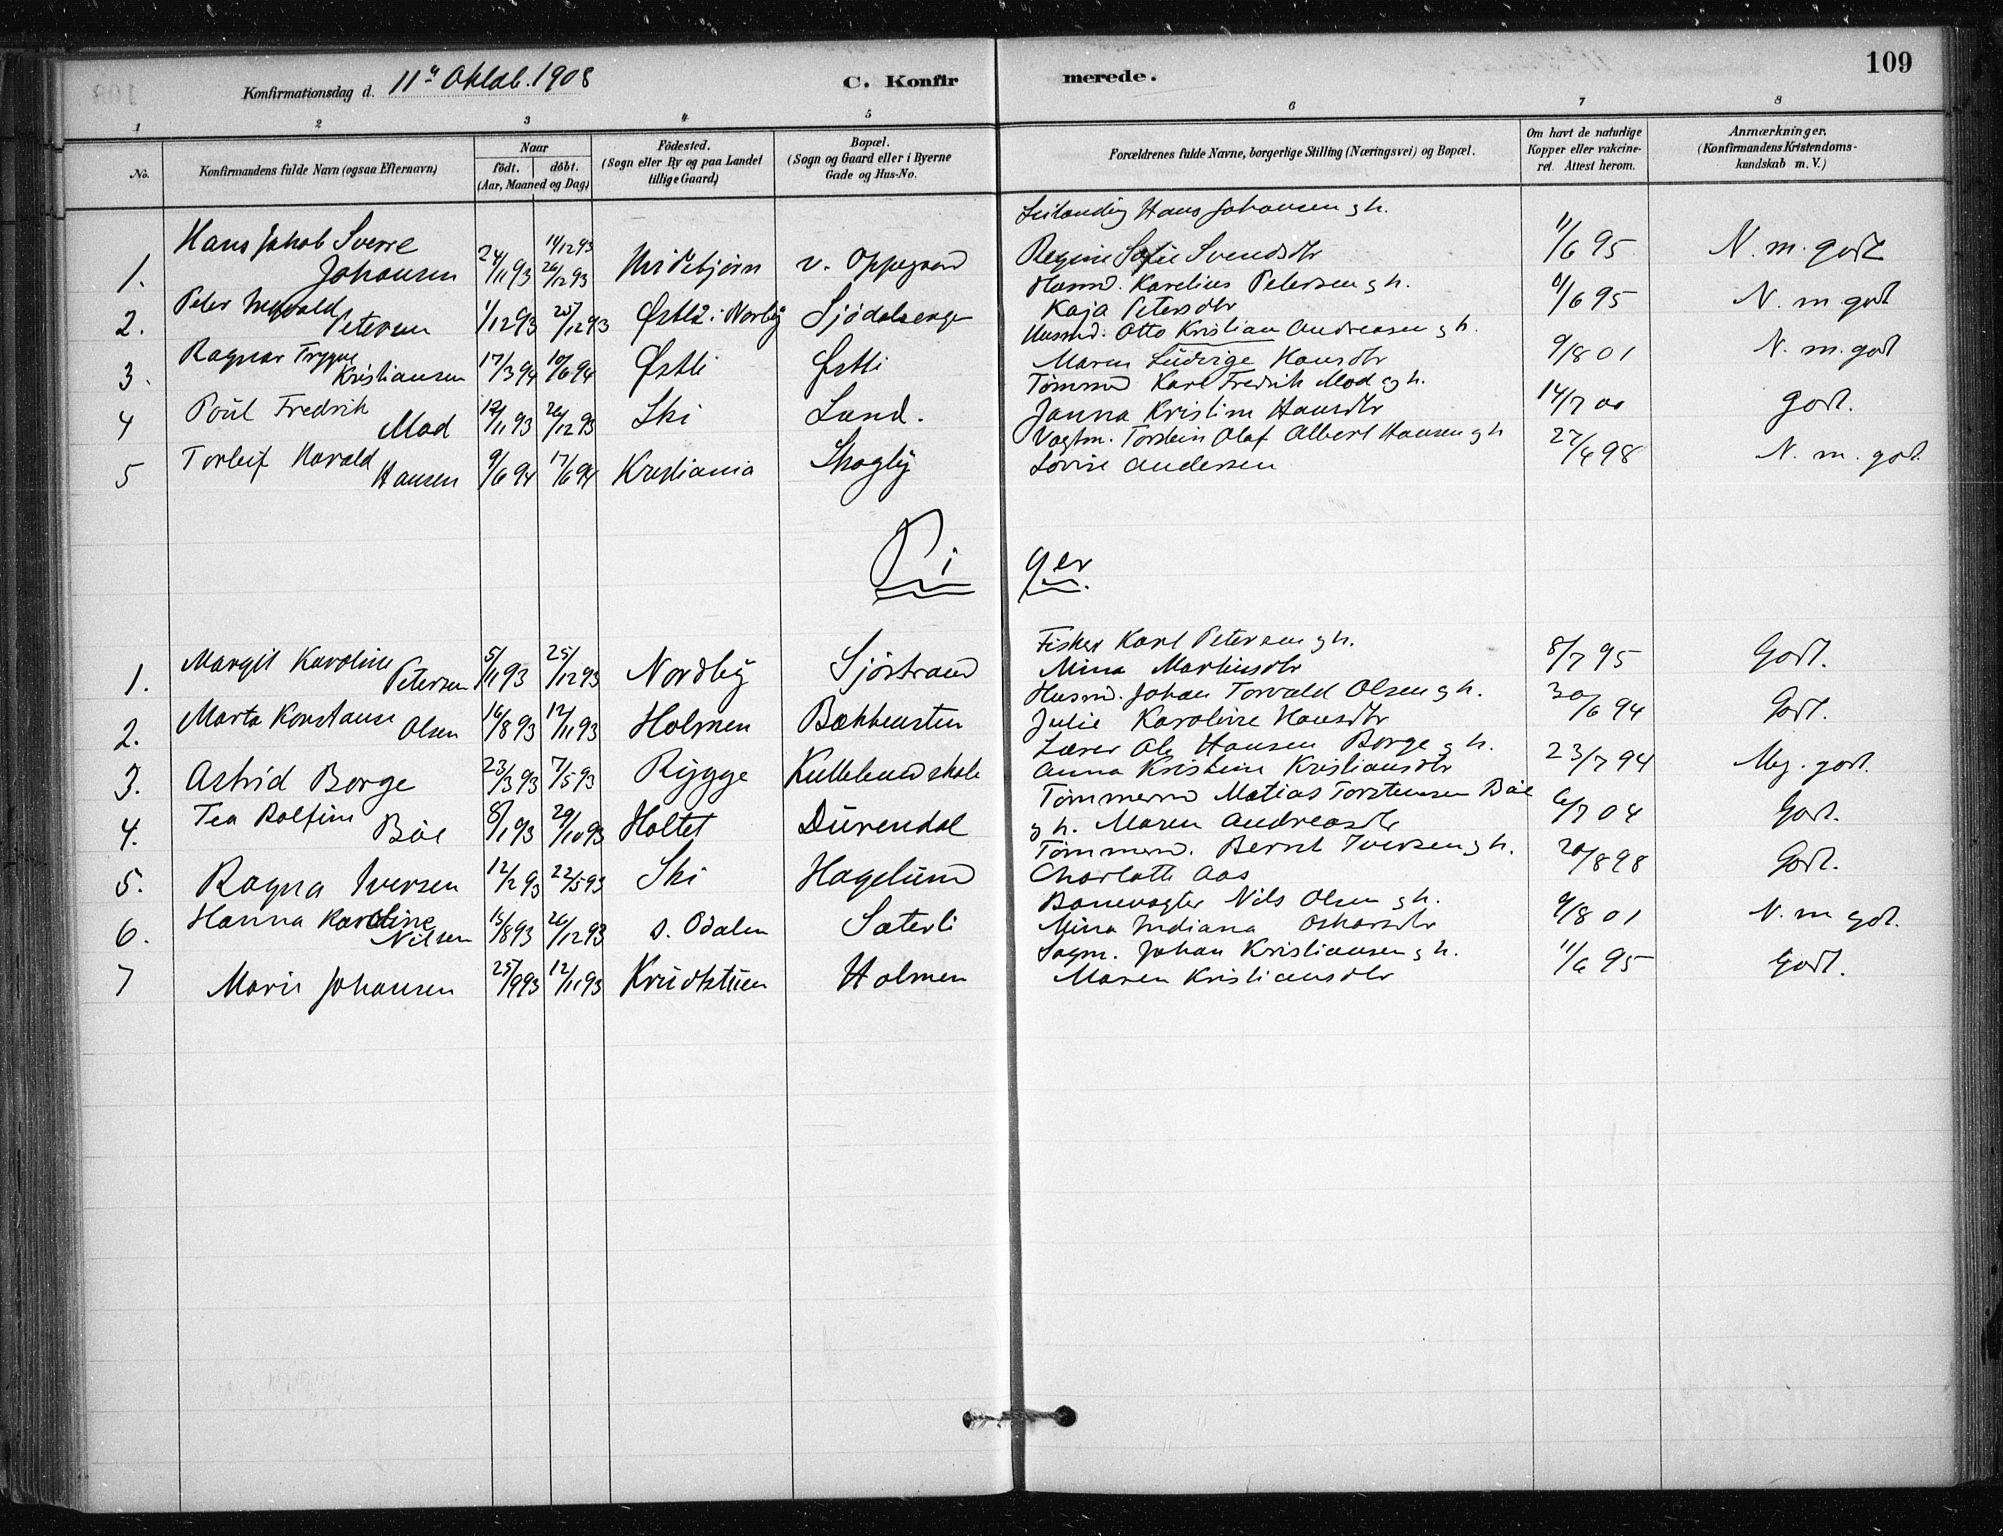 109
Konfirmationsdag d. 11te Oktob. 1908
C. Konfirmerede.
1 2 3 4 5 6 7 8
No.
Konfirmandens fulde Navn (ogsaa Efternavn)
Naar
födt. döbt.
(Aar, Maaned og Dag)
Födested.
(Sogn eller By og paa Landet
tillige Gaard)
Bopæl.
(Sogn og Gaard eller i Byerne
Gade og Hus-No.
Forældrenes fulde Navne, borgerlige Stilling (Næringsvei) og Bopæl.
Om havt de naturlige
Kopper eller vakcine-
ret. Attest herom.
Anmærkninger.
(Konfirmandens Kristendoms-
kundskab m. V.)
1. Hans Jakob Sverre Johansen 24/11 93 14/12 93 26/12 93 v. Oppegaard Hans Johansen og h. Regine Sofie Svendsdtr 11/6 95 N. m. godt
2. Peter Petersen 1/12 93 25/12 93 Østli i Norby Sjödalsenger Husmd. Karelius Petersen og h. Kaja Petersdtr 11/6 95 N. m. godt
3. Ragnar Trygve Kristiansen 17/3 94 10/6 94 Østli Østli Husmd. Otto Kristian Andreasen og h. Maren Ludvige Hansdtr 9/8 01 N. m. god
4 Poul Fredrik Mod 12/11 93 26/12 93 Ski Sand. Tömmd Karl Fredrik Mod og h. Janna Kristine Hansdtr 14/7 00 godt.
5 Torleif Harald Hansen 9/6 94 17/6 94 Kristiania Skogly Vogtm. Torstein Olaf Albert Hansen og h Lovise Andersen 27/4 98 N. m. god.
Piger
1. Margit Karoline Petersen 5/11 93 25/12 93 Nordby Sjöstrand Fisker Karl Petersen og h. Mina Martinsdtr 8/7 95 Godt.
2. Marta Konstanse Olsen 16/8 93 12/11 93 Holmen Bækkensten Husmd. Johan Torvald Olsen og h. Julie Karoline Hansdtr 30/6 94 Godt.
3. Astrid Borge 23/3 93 7/5 93 Rygge Kullebund skole Lærer Ole Hansen Borge og h. Anna Kristine Kristiansdtr 23/7 94 Meg. godt.
4. Tea Rolfine Böe 8/1 93 29/10 93 Holtet Durendal Tömmermd Matias Torstensen Böe og h. Maren Andreasdtr 6/7 04 Godt.
5. Ragna Iversen 12/2 93 22/5 93 Ski Hagelund Tömmermd. Bernt Iversen og h. Charlotte Aas 20/8 98 Godt.
6. Hanna Karoline Nilsen 15/8 93 26/12 93 s. Odalen Sæterli Banevogter Nils Olsen og h. Mina Indiana Oskarsdtr 9/8 01 N. m godt.
7 Marie Johansen 25/9 93 12/11 93 Krudtstuen Holmen Sagm. Johan Kristiansen og h. Maren Kristiansdtr 11/6 95 Godt.